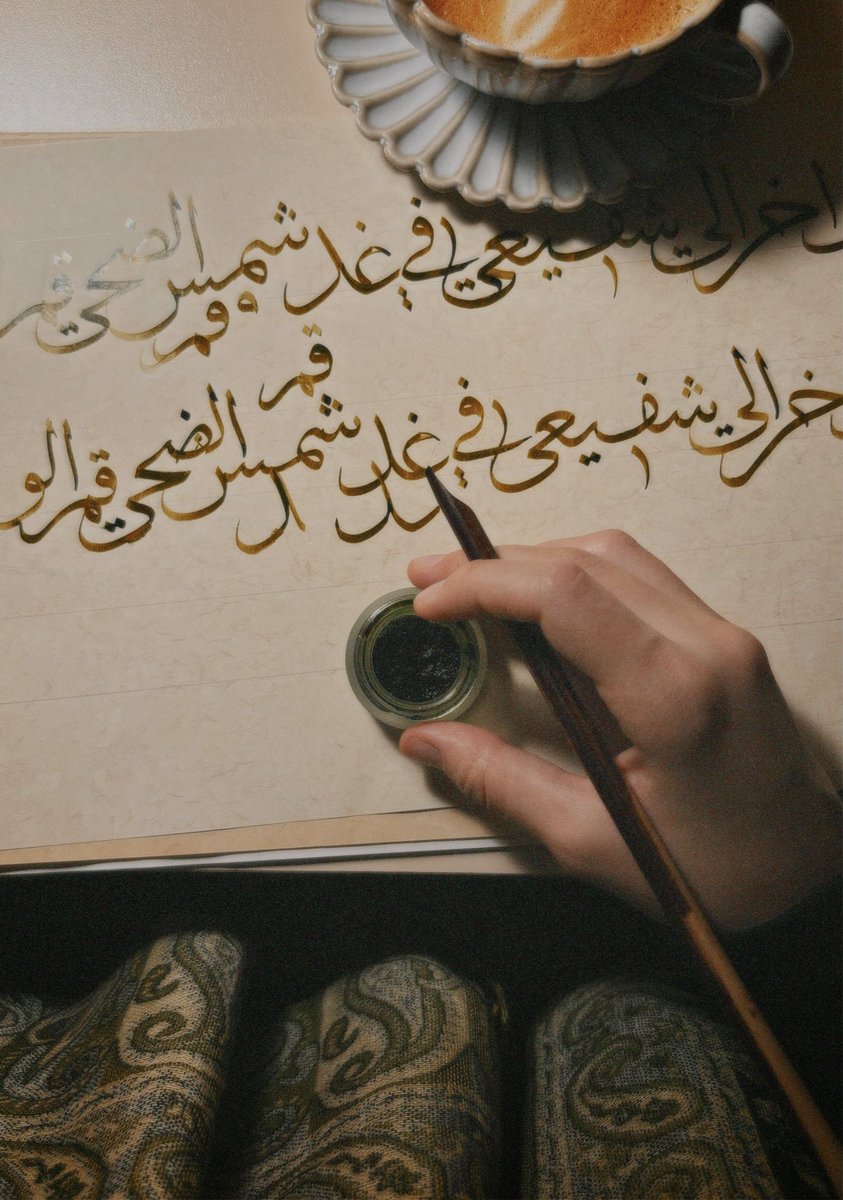 اخرا لي شفيعي في غد شمس الضحى قمر
وقمر
قمر
خرا لي شفيعي في غد شمس الضحى قمر الو